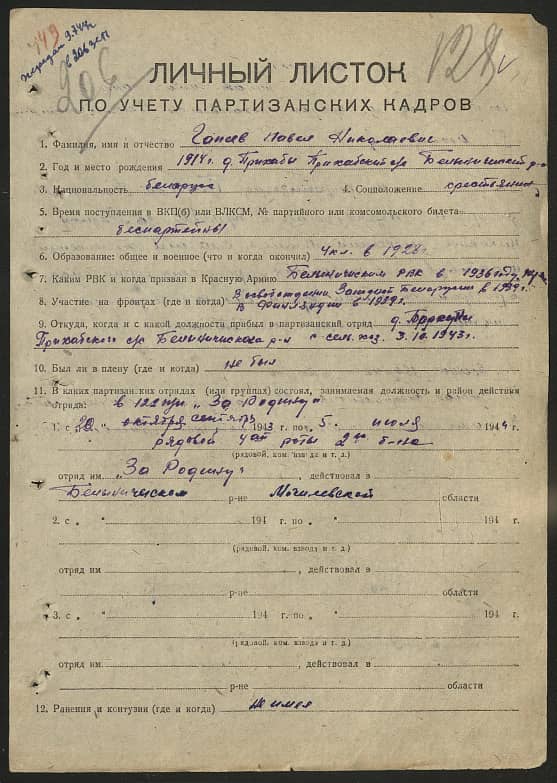 149
передан 9.7.44г
206
128
ЛИЧНЫЙ ЛИСТОК
ПО УЧЕТУ ПАРТИЗАНСКИХ КАДРОВ
1. Фамилия, имя и отчество Павел Николаевич
2. Год и место рождения 1914г. д. Прихабы Прихабский с/с Белыничский р-н
3. Национальность беларус 4. Соцположение крестьянин
5. Время поступления в ВКП(б) или ВЛКСМ, № партийного или комсомольского билета
беспартейны
6. Образование: общее и военное (что и когда окончил) 4 кл. в 1928г.
7. Каким РВК и когда призван в Красную Армию Белыничским РВК в 1936 году
8. Участие на фронтах (где и когда) В освобождении Западной Беларуссии в 1939г.
В Финляндии в 1939г.
9. Откуда, когда и с какой должности прибыл в партизанский отряд д.
Прихабского с/с Белыничского р-н с сел. хоз. 3.10.1943г.
10. Был ли в плену (где и когда) не был
11. В каких партизанских отрядах (или группах) состоял, занимаемая должность и район действия
отряда: в 122 п/п „За Родину"
1. с „20" октября сентябрь 1943 г. по „5." июля 1944 г.
рядовой роты 2го б-на
(рядовой, ком. взвода и т. д.)
отряд им „За Родину", действовал в
Белыничском р-не Могилевской области
2. с „ " 194 г. по „ " 194 г.
(рядовой, ком. взвода и т. д.)
отряд им , действовал в
р-не области
3. с „ " 194 г. по „ " 194 г.
(рядовой, ком. взвода и т. д.)
отряд им , действовал в
р-не области
12. Ранения и контузии (где и когда) не имел